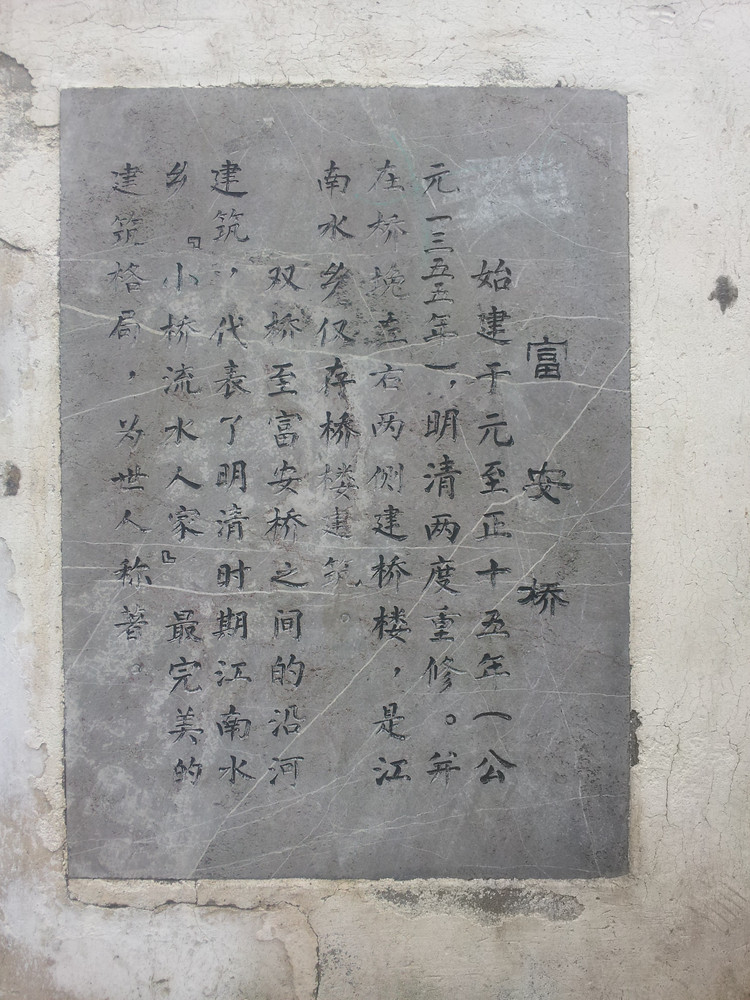 富安桥
始建于元至正十五年（公
元一三五五年），明清两度重修。并
在桥堍左右两侧建桥楼，是江
南水乡仅存桥楼建筑。
双桥至富安桥之间的沿河
建筑，代表了明清时期江南水
乡『小桥流水人家』最完美的
建筑格局，为世人称著。